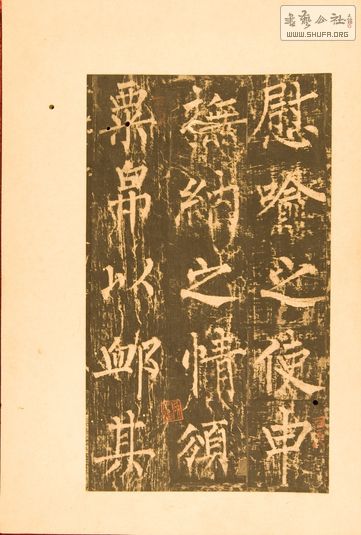 慰喻之使申
撫納之情頒
粟帛以卹其
書藝公社
WWW.SHUFA.ORG